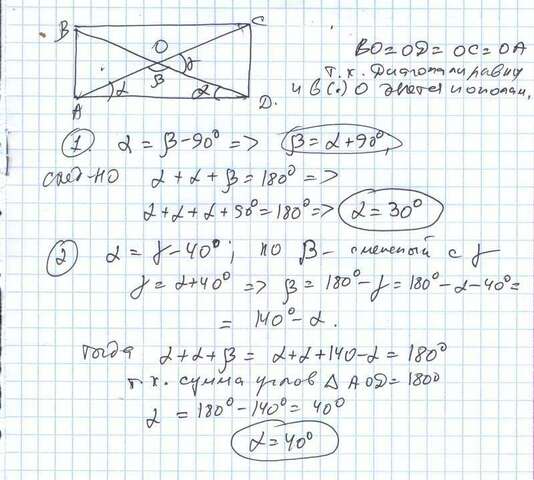 B C
O
γ
β
α α
A D.
BO=OD=OC=OA
т.к. Диагонали равны
и в (.) O делятся пополам.
1 α = β-90° => β=α+90°,
след-но α+α+β=180° =>
α+α+α+90°=180° => α=30°
2 α = γ-40°; но β- смежный с γ
γ=α+40° => β=180°-γ=180°-α-40°=
= 140°-α.
Тогда α+α+β= α+α+140-α=180°
т.к. сумма углов △ AOD=180°
α =180°-140°=40°
α=40°